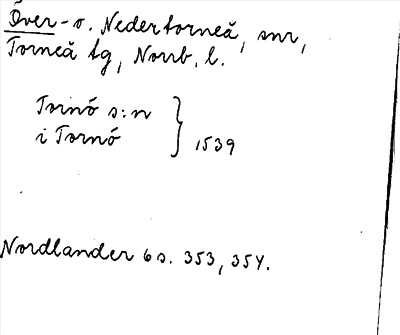 Över- o. Nedertorneå, snr,
Torneå tg, Norrb. l.
Tornö s:n
i Tornö } 1539
Nordlander 6 s. 353, 354.